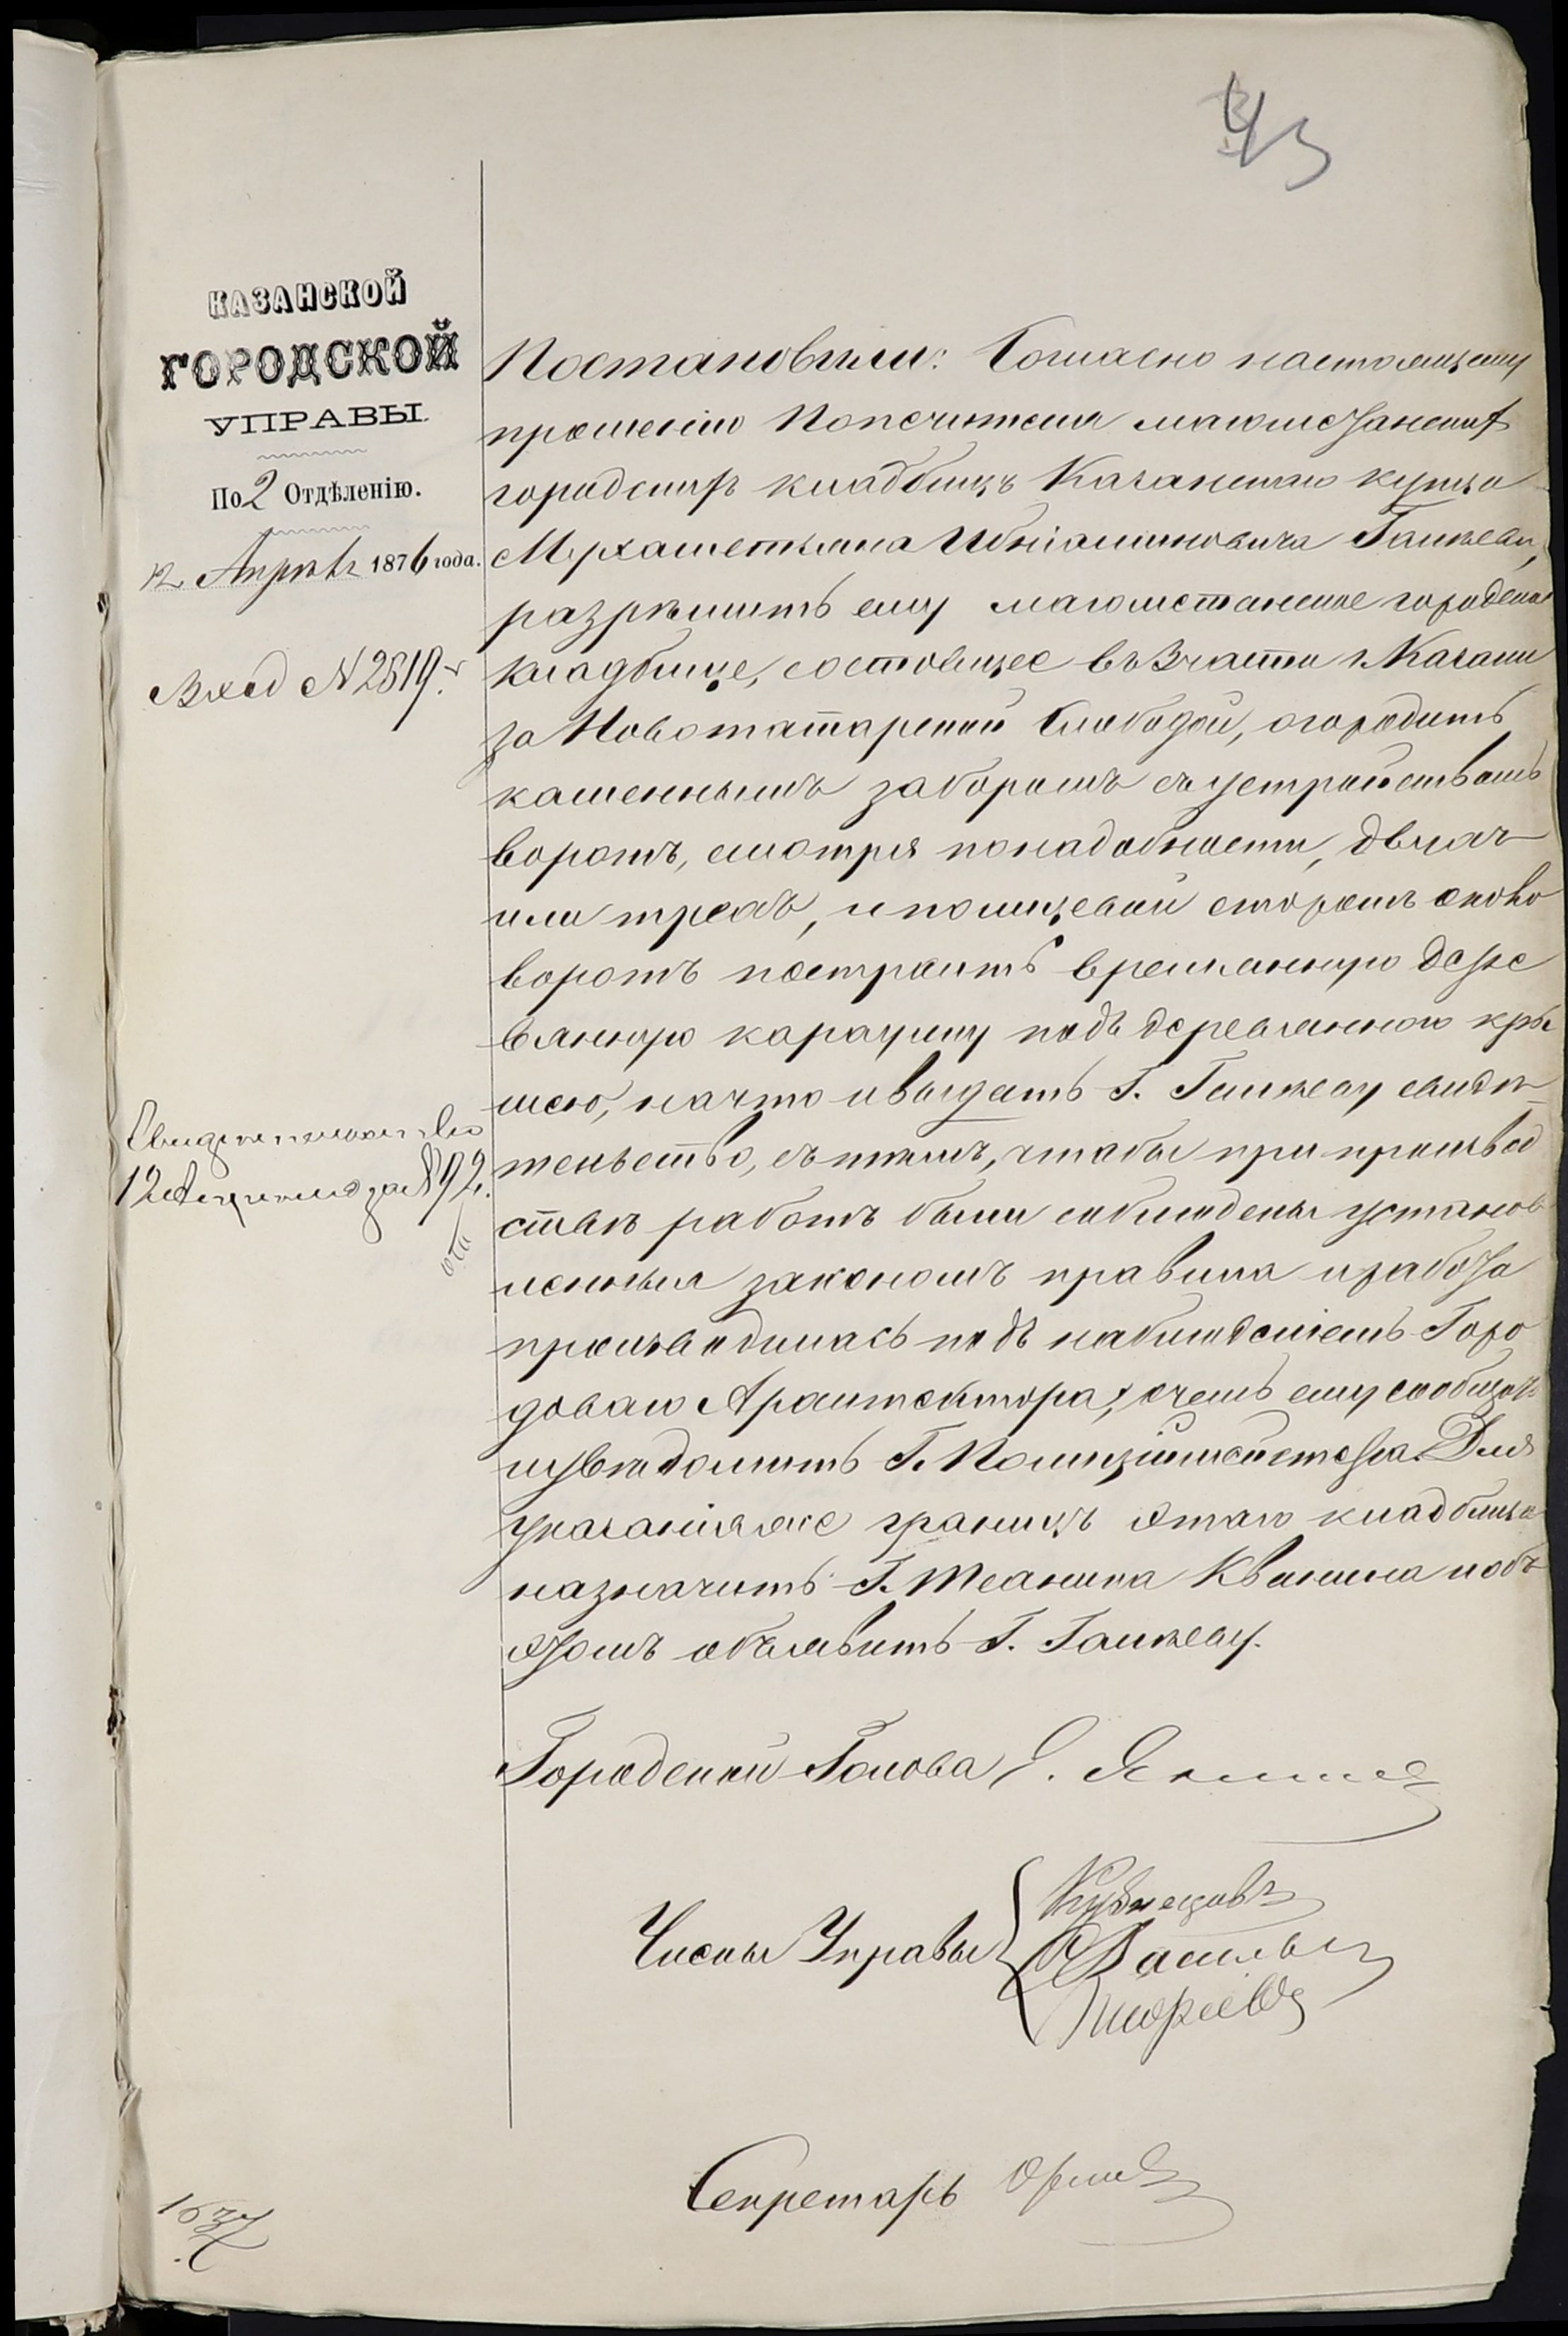 43
КАЗАНСКОЙ
ГОРОДСКОЙ
УПРАВЫ.
По 2 Отдѣленію.
12 Апрѣля 1876 года.
Вход №2819.
Свидѣтельство
12 Апрѣля за №892.
Постановили: Согласно настоящему
прошенію Попечителя магометанскихъ
городскихъ кладбищъ Казанскаго купца
Мухаметзяна Ибніаминовича Галѣева,
разрѣшить ему магометанское городское
кладбище, состоящее въ 3 части г. Казани
за Новотатарской Слободой, огородить
каменнымъ заборомъ съ устройствомъ
воротъ, смотря по надобности, двухъ
или трехъ, и по лицевой сторонѣ около
воротъ построить временную дере
вянную караулку подъ деревянною кры
шею, на что и выдать Г. Галѣеву свидѣ-
тельство, съ тѣмъ, чтобы при производ
ствѣ работъ были соблюдены установ
ленныя закономъ правила и работа
производилась подъ наблюденіемъ Горо
доваго Архитектора, о чемъ ему сообщить
и увѣдомить Г. Полиціймейстера. Для
указанія же границъ этаго кладбища
назначить Г. Техника Квинина и объ
этомъ объявить Г. Галѣеву.
Городской Голова Э. Янишев
Члены Управы
Кузнецовъ
Васильев
Секретарь Орлов
1637